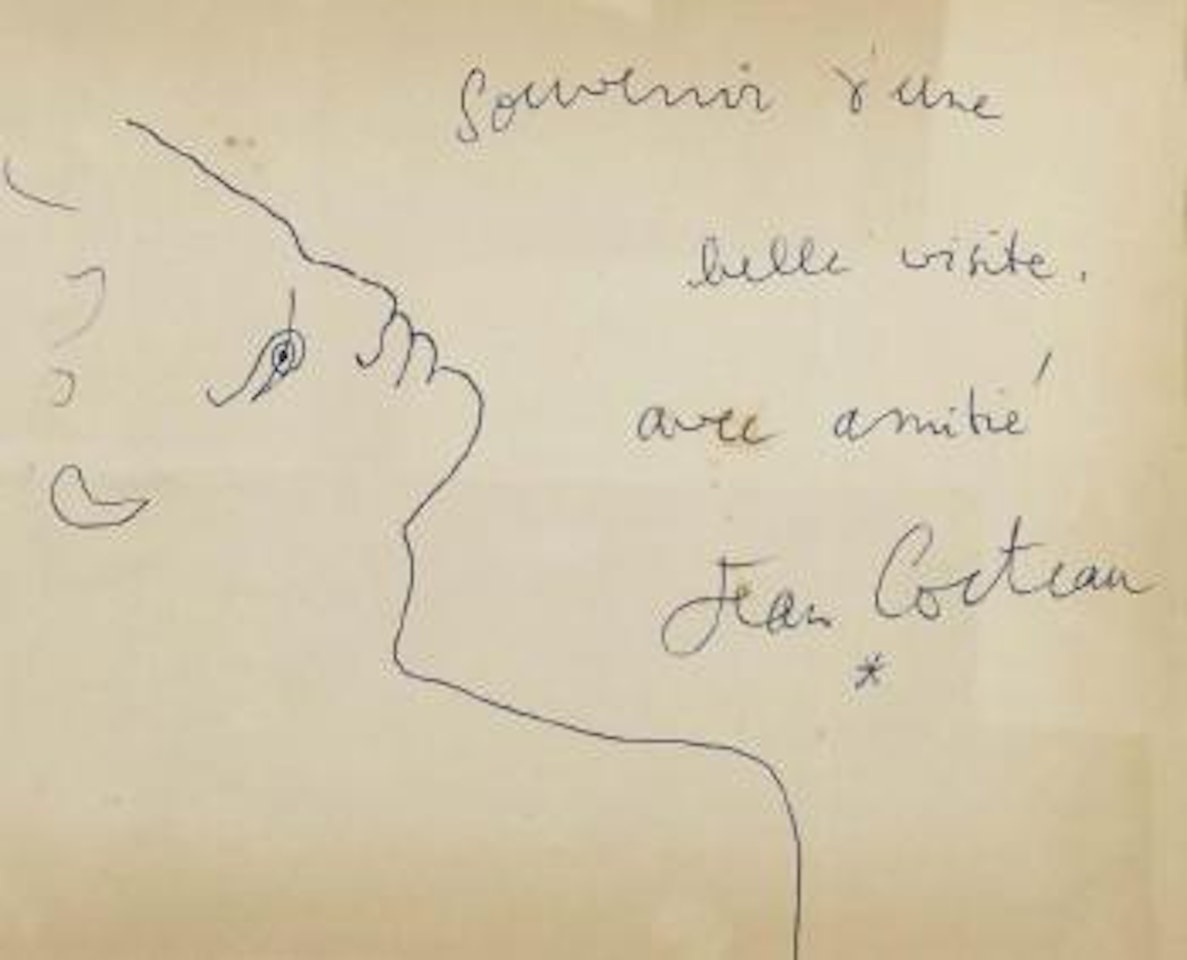 Souvenir d'une
belle visite.
avec amitié
Jean Cocteau
*